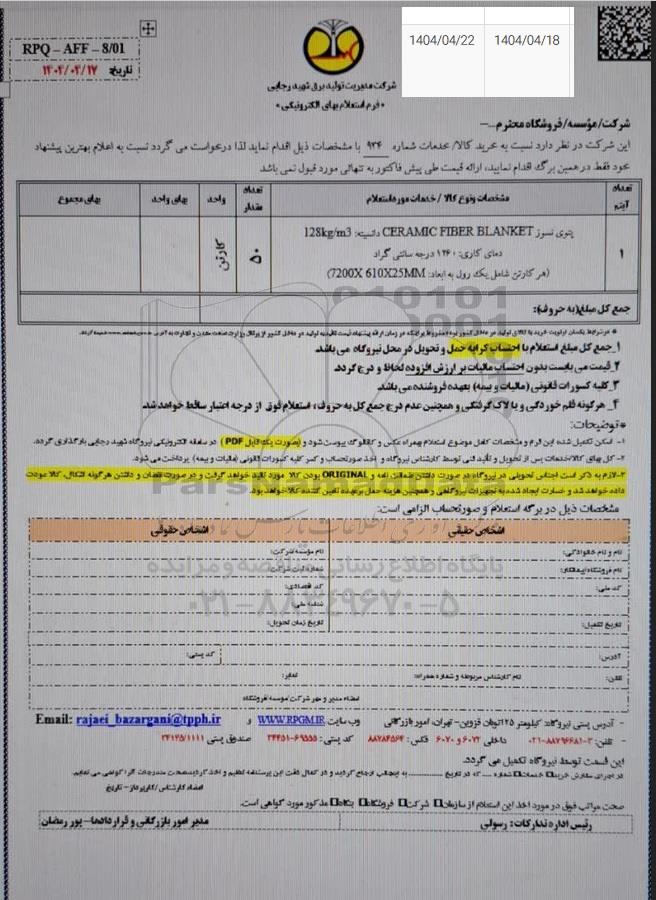 1404/04/22 1404/04/18
RPQ – AFF – 8/01
تاریخ: ۱۴۰۴/۰۴/۱۷
شرکت مدیریت تولید برق شهید رجایی
«فرم استعلام بهای الکترونیکی»
شرکت/مؤسسه/فروشگاه محترم
این شرکت در نظر دارد نسبت به خرید کالا/ خدمات شماره ۹۳۶ با مشخصات ذیل اقدام نماید لذا درخواست می گردد نسبت به اعلام بهترین پیشنهاد
خود فقط در همین برگه اقدام نمایید، ارائه قیمت طی پیش فاکتور به تنهائی مورد قبول نمی باشد
تعداد آیتم
مشخصات ونوع کالا / خدمات مورد استعلام
تعداد مقدار
واحد
بهای واحد
بهای مجموع
۱
پتوی نسوز CERAMIC FIBER BLANKET دانسیته: 128kg/m3
دمای کاری: ۱۲۶۰ درجه سانتی گراد
(هر کارتن شامل یک رول به ابعاد: 7200X 610X25MM)
۵۰
کارتن
جمع کل مبلغ(به حروف):
۱_جمع کل مبلغ استعلام با احتساب کرایه حمل و تحویل در محل نیروگاه می باشد.
۲_قیمت می بایست بدون احتساب مالیات بر ارزش افزوده لحاظ و درج گردد.
۳_کلیه کسورات قانونی (مالیات و بیمه) بعهده فروشنده می باشد.
۴_ هرگونه قلم خوردگی و یا لاک گرفتگی و همچنین عدم درج جمع کل به حروف، استعلام فوق از درجه اعتبار ساقط خواهد شد.
*توضیحات:
۱- اسکن تکمیل شده این فرم و مشخصات کامل موضوع استعلام بهمراه عکس و کاتالوگ پیوست شود و (بصورت یک فایل PDF) در سامانه الکترونیکی نیروگاه شهید رجایی بارگذاری گردد.
۲- کل بهای کالا/خدمات پس از تحویل و تأیید فنی توسط کارشناس نیروگاه و اخذ صورتحساب و کسر کلیه کسورات قانونی (مالیات و بیمه) پرداخت می شود.
۳-لازم به ذکر است اجناس تحویلی در نیروگاه در صورت داشتن ضمانت نامه و ORIGINAL بودن کالا مورد تائید خواهد گرفت و در صورت نقصان و داشتن هرگونه اشکال، کالا عودت
داده خواهد شد و خسارت ایجاد شده به تجهیزات نیروگاهی و همچنین هزینه حمل برعهده تامین کننده کالا خواهد بود.
مشخصات ذیل در برگه استعلام و صورتحساب الزامی است:
اشخاص حقیقی
اشخاص حقوقی
نام و نام خانوادگی:
نام مؤسسه/شرکت:
نام فروشگاه/پیمانکار:
شماره ثبت شرکت:
کد ملی:
کد اقتصادی:
شناسه ملی:
تاریخ تکمیل:
تاریخ زمان تحویل:
آدرس:
کد پستی:
تلفن:
نام کارشناس مربوطه و شماره همراه:
نمابر:
امضاء مدیر و مهر شرکت/موسسه/فروشگاه
ParsNamadData
پایگاه اطلاع رسانی مناقصه و مزایده
۰۲۱-۸۸۳۴۹۶۷۰-۵
- آدرس پستی نیروگاه: کیلومتر ۲۵ اتوبان قزوین- تهران، امور بازرگانی وب سایت WWW.RPGM.IR و Email: rajaei_bazargani@tpph.ir
- تلفن: ۳-۸۸۷۹۶۶۸۱-۰۲۱ داخلی ۶۰۷۳ و ۶۰۷۰ فکس: ۸۸۷۸۴۵۶۴ کد پستی: ۶۹۵۵۵-۳۴۴۵۱ صندوق پستی ۳۴۱۴۵/۱۱۱۱
این قسمت توسط نیروگاه تکمیل می گردد.
در اجرای سفارش خرید خدمات شماره .... که در تاریخ
امضاء کارشناس /کارپرداز – تاریخ
صحت مراتب فوق در مورد اخذ این استعلام از سازمان شرکت فروشگاه بنگاه مذکور مورد گواهی است.
رئیس اداره تدارکات: رسولی
مدیر امور بازرگانی و قراردادها– پور رمضان